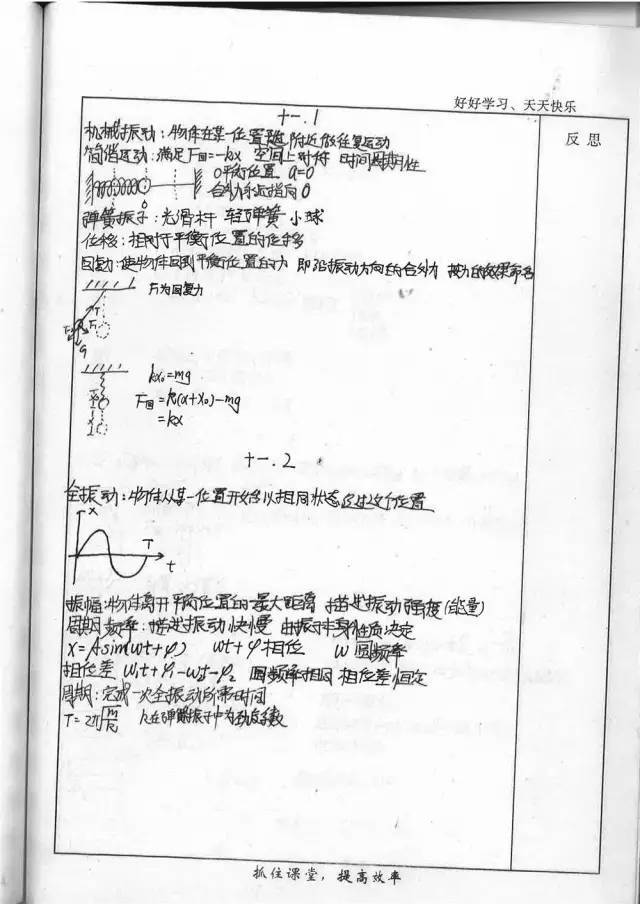 好好学习、天天快乐
反思
十一.1
机械振动:物体在某一位置附近做往复运动
简谐运动:满足F回=-kx 空间上对称 时间周期性
O平衡位置 a=0
合外力永远指向O
O
弹簧振子:光滑杆 轻弹簧 小球
位移:相对于平衡位置的位移
回复力:使物体回到平衡位置的力 即沿振动方向的合外力 按力的效果命名
F₁为回复力
T
F₂ F₁
G
kx₀=mg
F回=k(x+x₀)-mg
=kx
十一.2
全振动:物体从某一位置开始以相同状态经过这个位置
x
T
t
振幅:物体离开平衡位置的最大距离 描述振动强度(能量)
周期频率:描述振动快慢 由振子本身性质决定
x=Asin(wt+φ) wt+φ相位 w圆频率
相位差 w₁t+φ₁-w₂t-φ₂ 圆频率相同 相位差恒定
周期:完成一次全振动所需时间
T=2π√m/k k在弹簧振子中为劲度系数
抓住课堂,提高效率